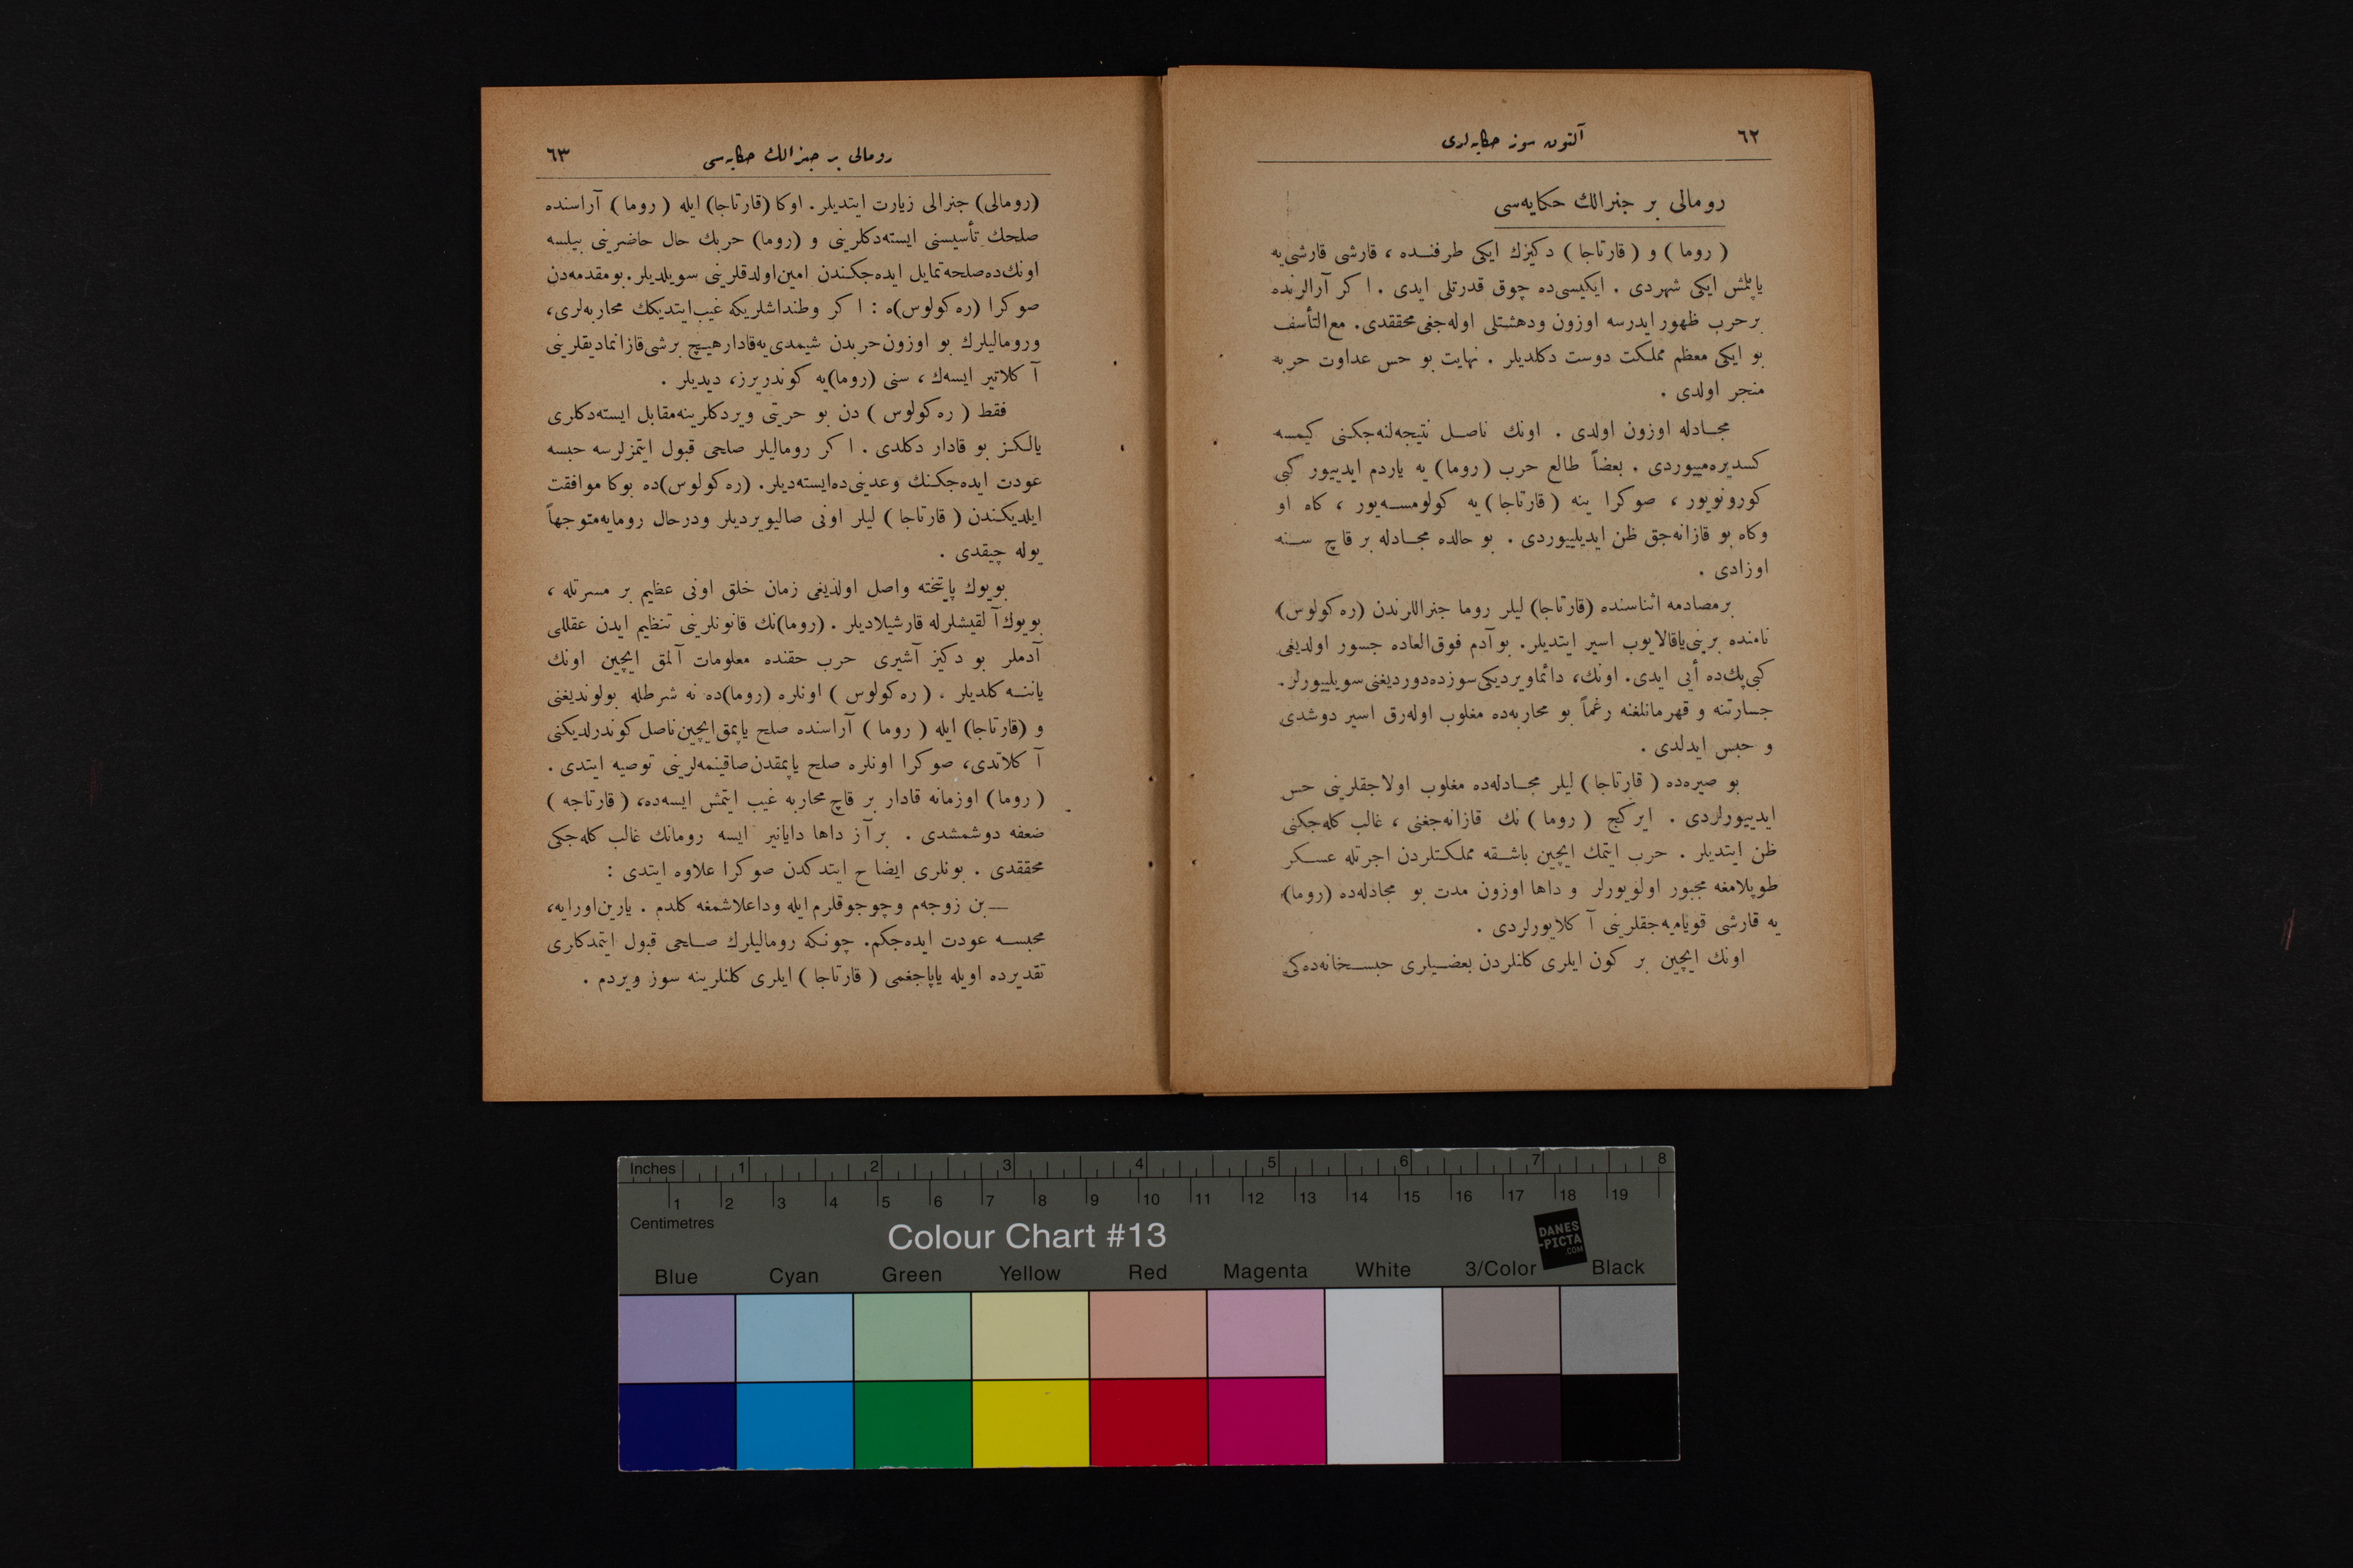 ٦٢
آلتون سوز حكايه‌لری
رومالی بر جنرالك حكايه‌سی
( روما ) و ( قارتاجا ) دكيزك ايكی طرفنـده ، قارشی قارشی‌يه
ياپلمش ايكی شهردی . ايكيسی‌ده چوق قدرتلی ايدی . اكر آرالرنده
برحرب ظهور ايدرسه اوزون ودهشتلی اوله‌جغی محققدی. مع‌التأسف
بو ايكی معظم مملكت دوست دكلديلر . نهايت بو حس عداوت حربه
منجر اولدی .
مجـادله اوزون اولدی . اونك ناصـل نتيجه‌لنه‌جكنی كيمسه
كسديره‌مييوردی . بعضاً طالع حرب (روما) يه ياردم ايدييور كبی
كورونويور ، صوكرا ينه (قارتاجا) يه كولومسـه‌يور ، كاه او
وكاه بو قازانه‌جق ظن ايديلييوردی . بو حالده مجـادله بر قاچ سـنه
اوزادی .
برمصادمه اثناسنده (قارتاجا) ليلر روما جنراللرندن (ره‌كولوس)
نامنده برينی‌ياقالايوب اسير ايتديلر. بوآدم فوق‌العاده جسور اولديغی
كبی‌پك‌ده أيی ايدی. اونك، دائماويرديكی‌سوزده‌دورديغنی‌سويلييورلر.
جسارتنه و قهرمانلغنه رغماً بو محاربه‌ده مغلوب اوله‌رق اسير دوشدی
و حبس ايدلدی .
بو صيره‌ده ( قارتاجا ) ليلر مجـادله‌ده مغلوب اولاجقلرينی حس
ايدييورلردی . ايركچ ( روما ) نك قازانه‌جغنی ، غالب كله‌جكنی
ظن ايتديلر . حرب ايتمك ايچين باشـقه مملكتلردن اجرتله عسـكر
طوپلامغه مجبور اولويورلر و داها اوزون مدت بو مجادله‌ده (روما)
يه قارشی قويا‌ميه‌جقلرينی آكلايورلردی .
اونك ايچين بر كون ايلری كلنلردن بعضـيلری حبسـخانه‌ده‌كی
رومالی بر جنرالك حكايه‌سی
٦٣
(رومالی) جنرالی زيارت ايتديلر. اوكا (قارتاجا) ايله ( روما ) آراسنده
صلحك تأسيسنی ايسته‌دكلرينی و (روما) حربك حال حاضرينی بيلسه
اونك‌ده‌صلحه‌تمايل ايده‌جكندن امين‌اولدقلرينی سويلديلر. بومقدمه‌دن
صوكرا (ره‌كولوس)ه : اكر وطنداشلريكه غيب‌ايتديكك محاربه‌لری،
ورومالیلرك بو اوزون‌حربدن شيمدی‌يه‌قادار‌هيـچ برشی‌قازانماديقلرينی
آكلاتير ايسه‌ك ، سنی (روما)يه كوندريرز، ديديلر .
فقط ( ره‌كولوس ) دن بو حريتی ويردكلرينه‌مقابل ايسته‌دكلری
يالكز بو قادار دكلدی . اكر روماليلر صلحی قبول ايتمزلرسه حبسه
عودت ايده‌جكنك وعدينی‌ده‌ايسته‌ديلر. (ره‌كولوس)ده بوكا موافقت
ايلديكندن ( قارتاجا ) ليلر اونی صاليويرديلر ودرحال رومايه‌متوجهاً
يوله چيقدی .
بويوك پايتخته واصل اولديغی زمان خلق اونی عظيم بر مسرتله ،
بويوك‌آلقيشلرله قارشيلاديلر . (روما)نك قانونلرينی تنظيم ايدن عقللی
آدملر بو دكيز آشيری حرب حقنده معلومات آلمق ايچين اونك
ياننـه كلديلر . ( ره‌كولوس ) اونلره (روما)ده نه شرطله بولونديغنی
و (قارتاجا) ايله ( روما ) آراسنده صلح ياپمق‌ايچين‌ناصل كوندرلديكنی
آكلاتدی، صوكرا اونلره صلح ياپمقدن‌صاقينمه‌لرينی توصيه ايتدی .
( روما) اوزمانه قادار بر قاچ محاربه غيب ايتمش ايسه‌ده، ( قارتاجه )
ضعفه دوشمشدی . برآز داها دايانير ايسه رومانك غالب كله‌جكی
محققدی . بونلری ايضاح ايتدكدن صوكرا علاوه ايتدی :
— بن زوجه‌م وچوجوقلرم‌ايله وداعلاشمغه كلدم . يارين‌اورايه،
محبسـه عودت ايده‌جكم. چونكه رومالیلرك صـلحی قبول ايتمدكلری
تقديرده اويله ياپاجغمی ( قارتاجا ) ايلری كلنلرينه سوز ويردم .
Inches 1 2 3 4 5 6 7 8
1 2 3 4 5 6 7 8 9 10 11 12 13 14 15 16 17 18 19
Centimetres
Colour Chart #13
DANES
-PICTA
.COM
Blue Cyan Green Yellow Red Magenta White 3/Color Black